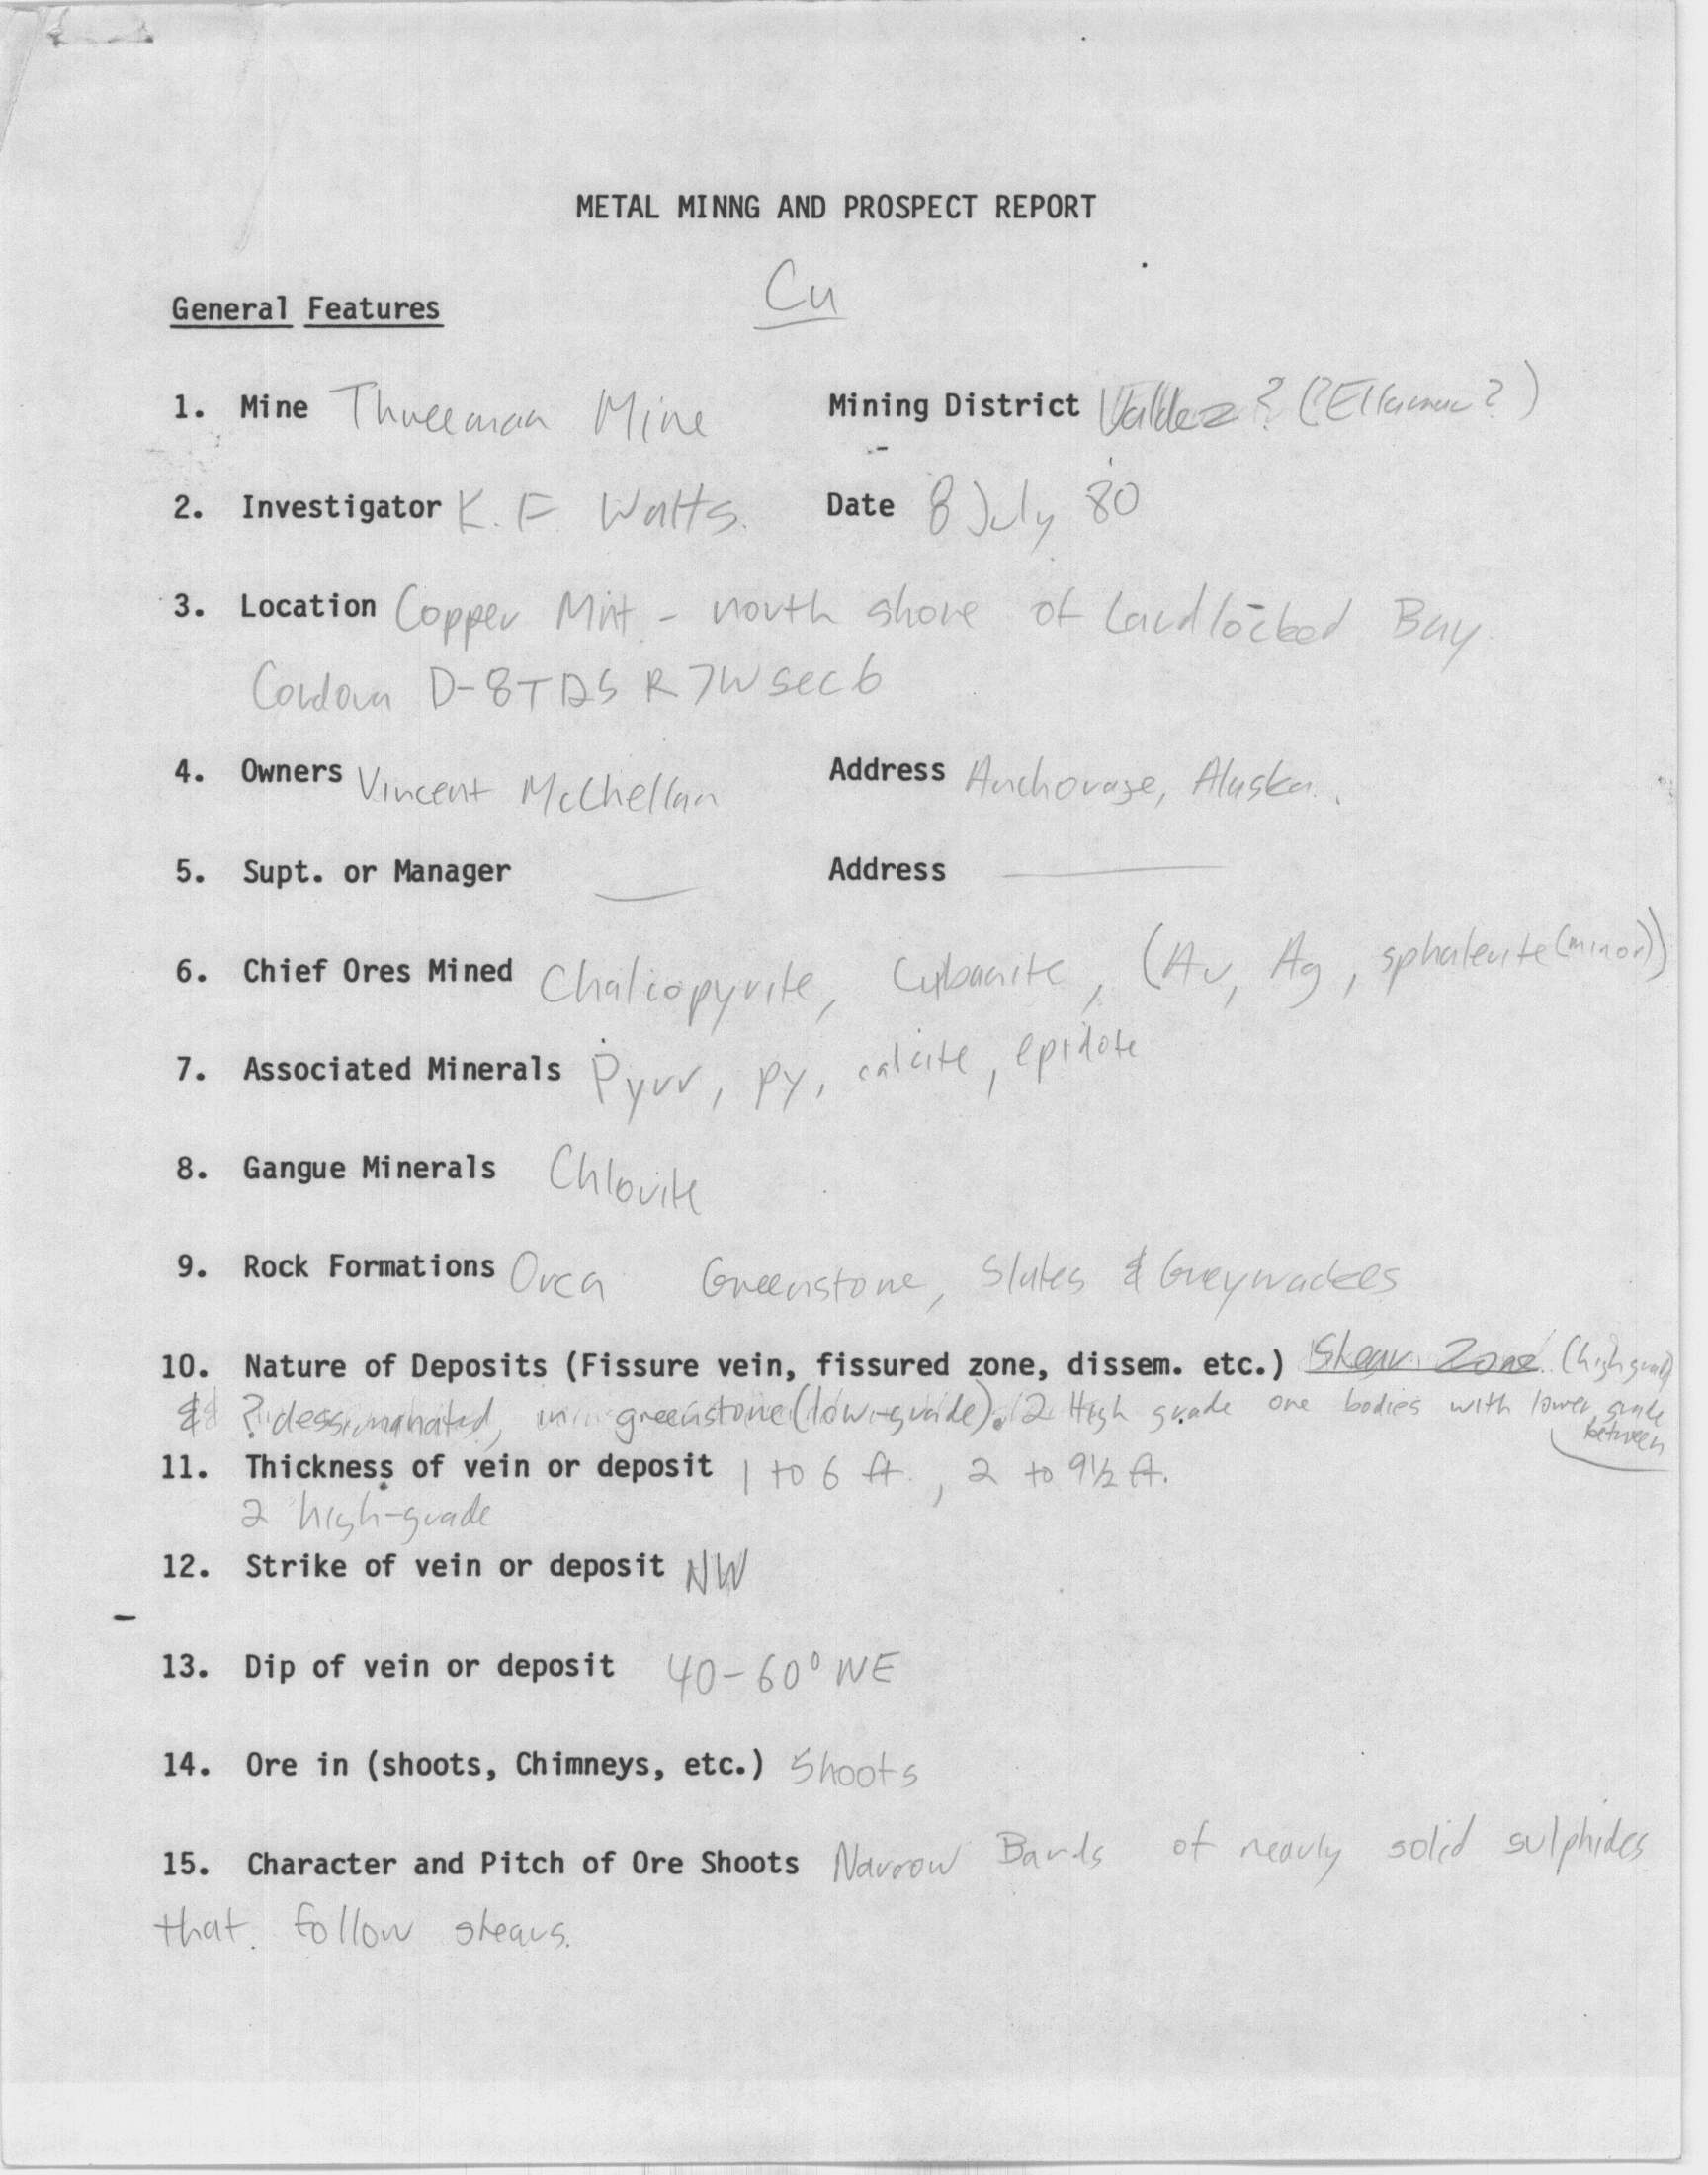 METAL MINNG AND PROSPECT REPORT
Cu
General Features
1. Mine Threeman Mine Mining District Valdez? (?Ellamar?)
2. Investigator K. F Watts. Date 8 July 80
3. Location Copper Mnt - north shore of Landlocked Bay
Cordova D-8 T R 7W sec 6
4. Owners Vincent McChellan Address Anchorage, Alaska.
5. Supt. or Manager — Address —
6. Chief Ores Mined Chalcopyrite, Cubanite, (Au, Ag, sphalerite (minor))
7. Associated Minerals Pyrr, py, calcite, epidote
8. Gangue Minerals Chlorite
9. Rock Formations Orca Greenstone, Slates & Greywackes
10. Nature of Deposits (Fissure vein, fissured zone, dissem. etc.) Shear Zone (high grade)
& ? dessimanated, in greenstone (low-grade). 2 High grade ore bodies with lower grade
between
11. Thickness of vein or deposit 1 to 6 ft., 2 to 9½ ft.
2 high-grade
12. Strike of vein or deposit NW
13. Dip of vein or deposit 40-60° NE
14. Ore in (shoots, Chimneys, etc.) Shoots
15. Character and Pitch of Ore Shoots Narrow Bands of nearly solid sulphides
that follow shears.